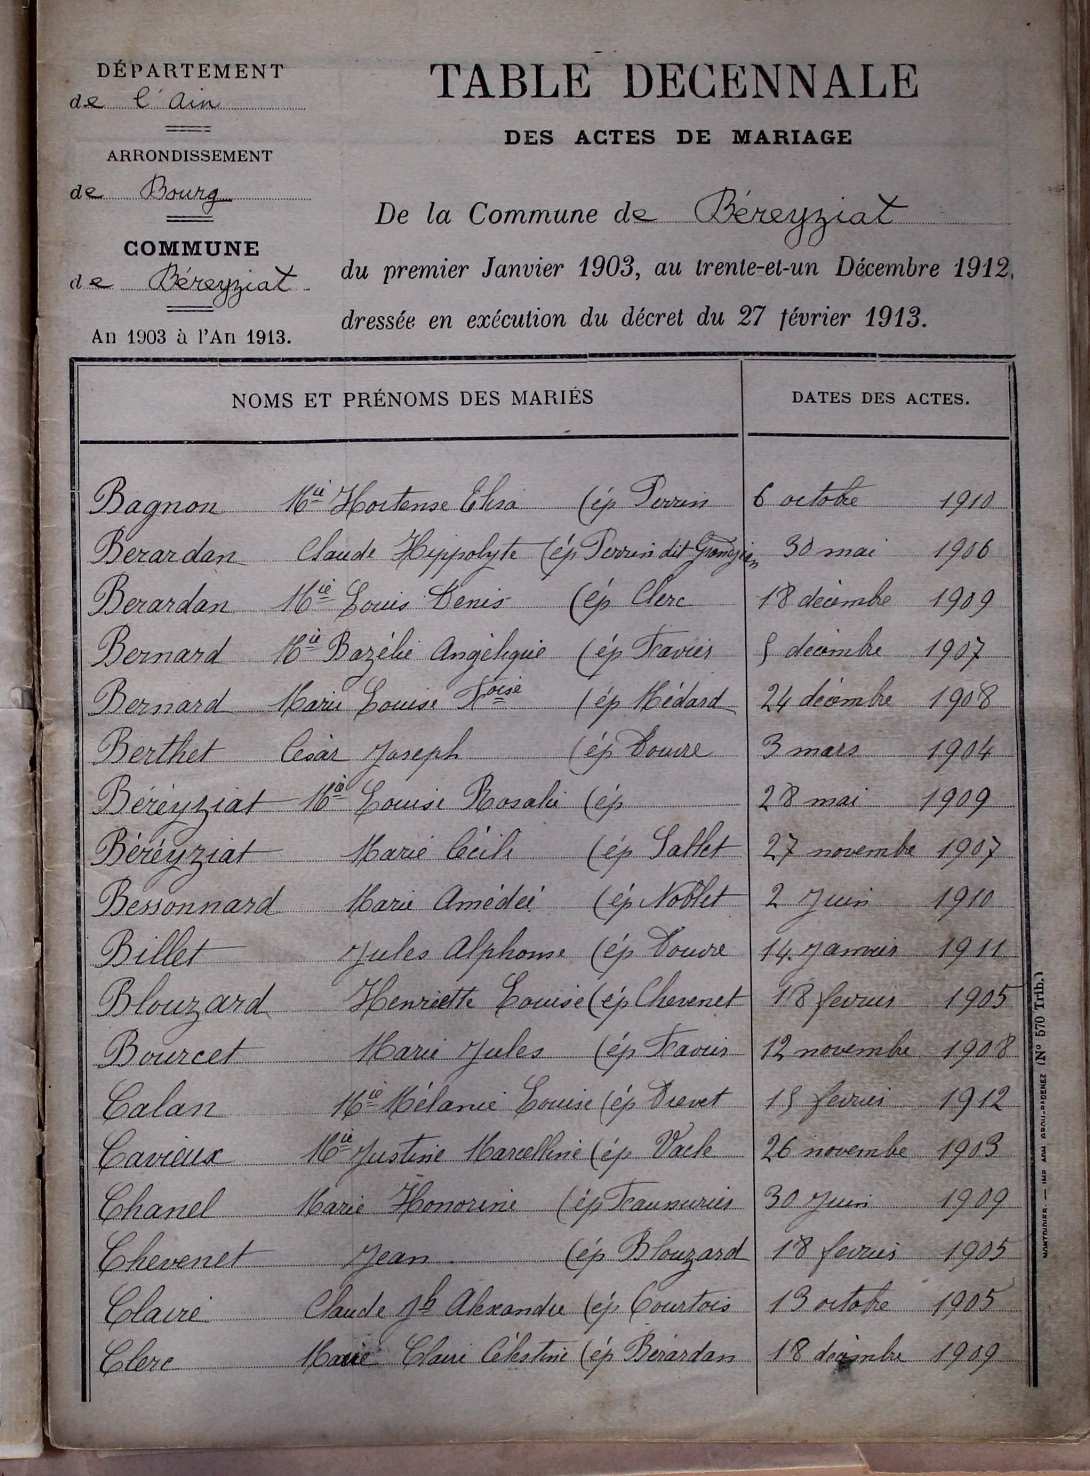 DÉPARTEMENT
de l'Ain
ARRONDISSEMENT
de Bourg
COMMUNE
de Béreyziat
An 1903 à l'An 1913.
TABLE DECENNALE
DES ACTES DE MARIAGE
De la Commune de Béreyziat
du premier Janvier 1903, au trente-et-un Décembre 1912,
dressée en exécution du décret du 27 février 1913.
NOMS ET PRÉNOMS DES MARIÉS DATES DES ACTES.
Bagnon Mie Hortense Elisa (ép Perrin 6 octobre 1910
Berardan Claude Hippolyte (ép Perrin dit 30 mai 1906
Berardan Mie Louis Denis (ép Clerc 18 décembre 1909
Bernard Mie Bazélie Angélique (ép Favier 5 décembre 1907
Bernard Marie Louise Foise (ép Médard 24 décembre 1908
Berthet César Joseph (ép Douvre 3 mars 1904
Béréyziat Mie Louise Rosalie (ép 28 mai 1909
Béréyziat Marie Cécile (ép Sallet 27 novembre 1907
Bessonnard Marie Amédéé (ép Noblet 2 Juin 1910
Billet Jules Alphonse (ép Douvre 14 Janvier 1911
Blouzard Henriette Louise (ép Chevenet 18 fevrier 1905
Bourcet Marie Jules (ép Favier 12 novembre 1908
Calan Mie Mélanie Louise (ép Drevet 15 fevrier 1912
Cavieux Mie Justine Marcelline (ép Vacle 26 novembre 1903
Chanel Marie Honorine (ép 30 Juin 1909
Chevenet Jean (ép Blouzard 18 fevrier 1905
Claire Claude Jh Alexandre (ép Courtois 13 octobre 1905
Clerc Marie Claire Célestine (ép Bérardan 18 décembre 1909
(N° 570 Trib.)